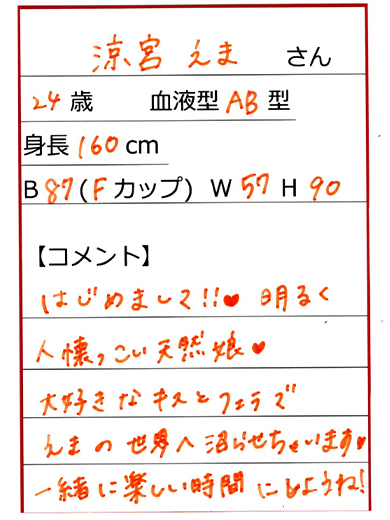 涼宮 えま さん
24歳 血液型 AB型
身長160cm
B 87(Fカップ) W 57 H 90
【コメント】
はじめまして!!♥ 明るく
人懐っこい天然娘♥
大好きなキスとフェラで
えまの世界へ沼らせちゃいます♥
一緒に楽しい時間にしようね!